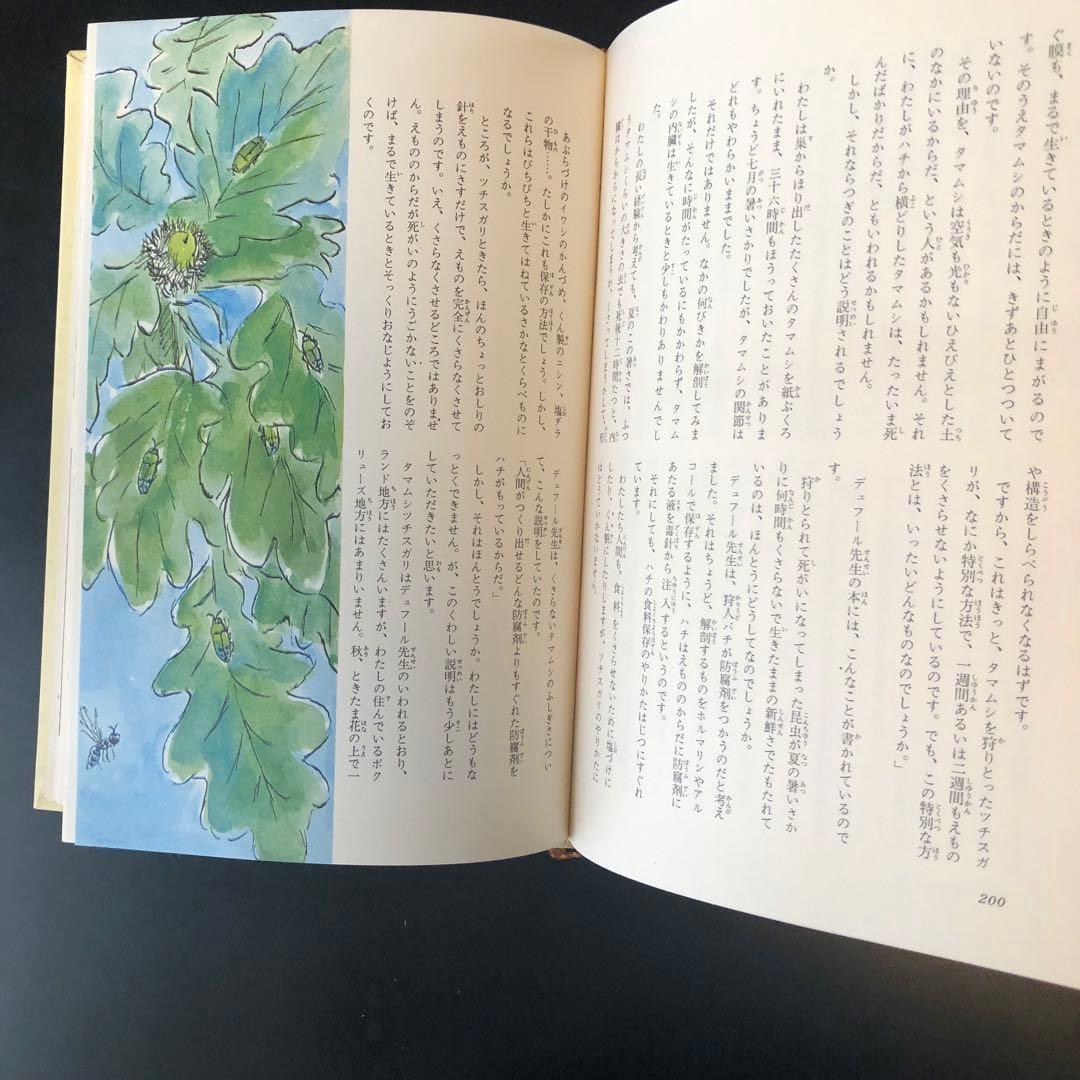 ぐ膜も、まるで生きているときのように自由にまがるので
す。そのうえタマムシのからだには、きずあとひとつついて
いないのです。
その理由を、タマムシは空気も光もないひえびえとした土
のなかにいるからだ、という人があるかもしれません。それ
に、わたしがハチから横どりしたタマムシは、たったいま死
んだばかりだからだ、ともいわれるかもしれません。
しかし、それならつぎのことはどう説明されるでしょう
か。
わたしは巣からほり出したたくさんのタマムシを紙ぶくろ
にいれたまま、三十六時間もほうっておいたことがありま
す。ちょうど七月の暑いさかりでしたが、タマムシの関節は
どれもやわらかいままでした。
それだけではありません。なかの何びきかを解剖してみま
したが、そんなに時間がたっているにもかかわらず、タマム
シの内臓は生きているときと少しもかわりありませんでし
た。
わたしの長い経験から考えても、夏のこの暑さでは、ふつ
うタマムシくらいの大きさの虫でも死後十二時間たつと、内
臓はからからになってしまうか、くさってしまうかして、形
や構造をしらべられなくなるはずです。
ですから、これはきっと、タマムシを狩りとったツチスガ
リが、なにか特別な方法で、一週間あるいは二週間もえもの
をくさらせないようにしているのです。でも、この特別な方
法とは、いったいどんなものなのでしょうか。」
デュフール先生の本には、こんなことが書かれているので
す。
狩りとられて死がいになってしまった昆虫が夏の暑いさか
りに何時間もくさらないで生きたままの新鮮さでたもたれて
いるのは、ほんとうにどうしてなのでしょうか。
デュフール先生は、狩人バチが防腐剤をつかうのだと考え
ました。それはちょうど、解剖するものをホルマリンやアル
コールで保存するように、ハチはえもののからだに防腐剤に
あたる液を毒針から注入するというのです。
それにしても、ハチの食料保存のやりかたはじつにすぐれ
わたしたち人間も、食料をくさらせないために塩づけに
したり、くん製にしたりしますが、ツチスガリのやりかたに
はとうていかないません。
200
あぶらづけのイワシのかんづめ、くん製のニシン、塩ダラ
の干物……。たしかにこれも保存の方法でしょう。しかし、
これらはぴちぴちと生きてはねているさかなとくらべものに
なるでしょうか。
ところが、ツチスガリときたら、ほんのちょっとおしりの
針をえものにさすだけで、えものを完全にくさらなくさせて
しまうのです。いえ、くさらなくさせるどころではありませ
ん。えもののからだが死がいのようにうごかないことをのぞ
けば、まるで生きているときとそっくりおなじようにしてお
くのです。
デュフール先生は、くさらないタマムシのふしぎさについ
て、こんな説明をしていたのです。
「人間がつくり出せるどんな防腐剤よりもすぐれた防腐剤を
ハチがもっているからだ。」
しかし、それはほんとうでしょうか。わたしにはどうもな
っとくできません。が、このくわしい説明はもう少しあとに
していただきたいと思います。
タマムシツチスガリはデュフール先生のいわれるとおり、
ランド地方にはたくさんいますが、わたしの住んでいるボク
リューズ地方にはあまりいません。秋、ときたま花の上で一